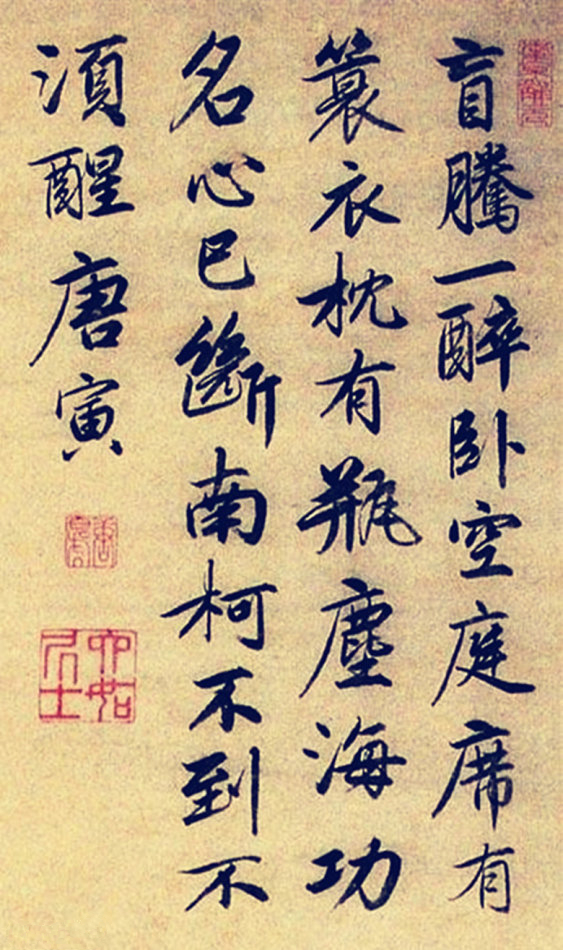 盲騰一醉卧空庭席有
簑衣枕有瓶塵海功
名心已斷南柯不到不
湏醒唐寅
六如居士